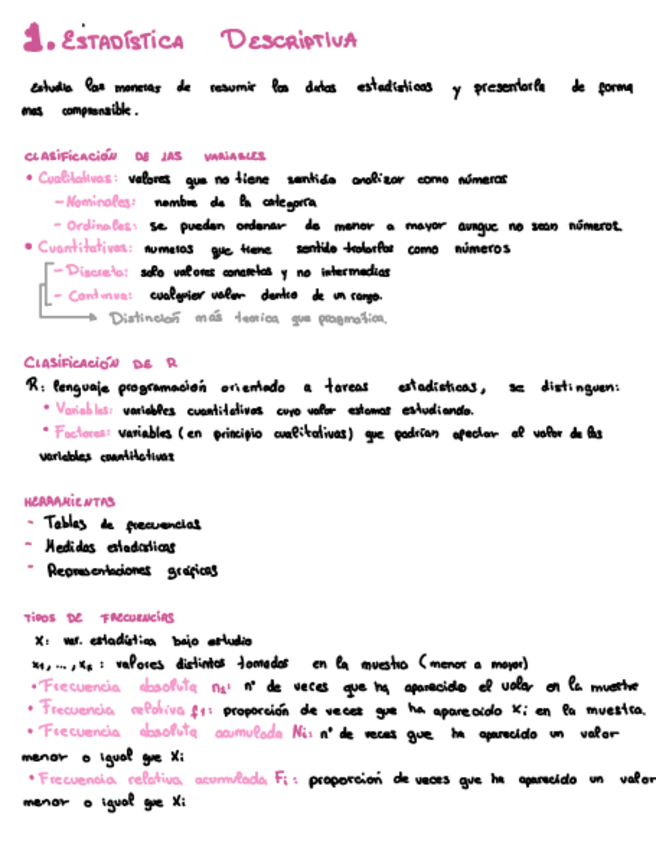 1. ESTADÍSTICA DESCRIPTIVA
Estudia las maneras de resumir los datos estadísticos y presentarla de forma
mas comprensible.
CLASIFICACIÓN DE LAS VARIABLES
• Cualitativas: valores que no tiene sentido analizar como números
- Nominales: nombre de la categoría
- Ordinales: se pueden ordenar de menor a mayor aunque no sean números.
• Cuantitativas: numeros que tiene sentido tratarlos como números
- Discreta: solo valores concretos y no intermedios
- Continua: cualquier valor dentro de un rango.
Distinción más teorica que pragmatica.
CLASIFICACIÓN DE R
R: lenguaje programación orientado a tareas estadísticas, se distinguen:
• Variables: variables cuantitativas cuyo valor estamos estudiando.
• Factores: variables (en principio cualitativas) que podrían afectar al valor de las
variables cuantitativas
HERRAMIENTAS
- Tablas de frecuencias
- Medidas estadísticas
- Representaciones gráficas
TIPOS DE FRECUENCIAS
X: var. estadística bajo estudio
x1, ..., xk : valores distintos tomados en la muestra (menor a mayor)
• Frecuencia absoluta ni: nº de veces que ha aparecido el valor en la muestra
• Frecuencia relativa fi: proporción de veces que ha aparecido xi en la muestra.
• Frecuencia absoluta acumulada Ni: nº de veces que ha aparecido un valor
menor o igual que Xi
• Frecuencia relativa acumulada Fi: proporcion de veces que ha aparecido un valor
menor o igual que Xi